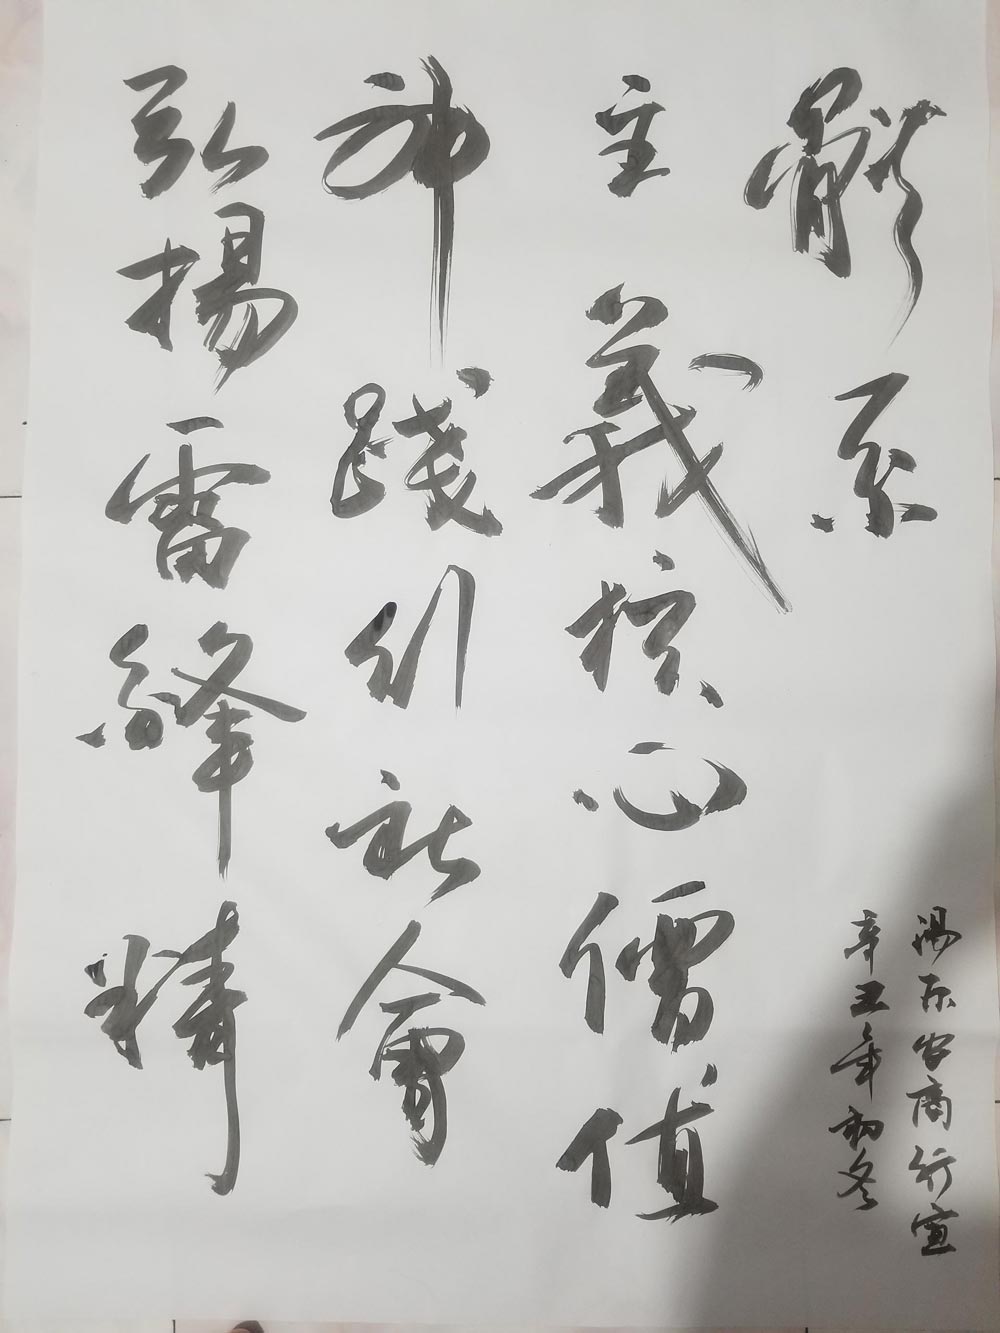 弘揚雷鋒精
神踐行社會
主義核心價值
體系
辛丑年初冬
湯原农商行宣